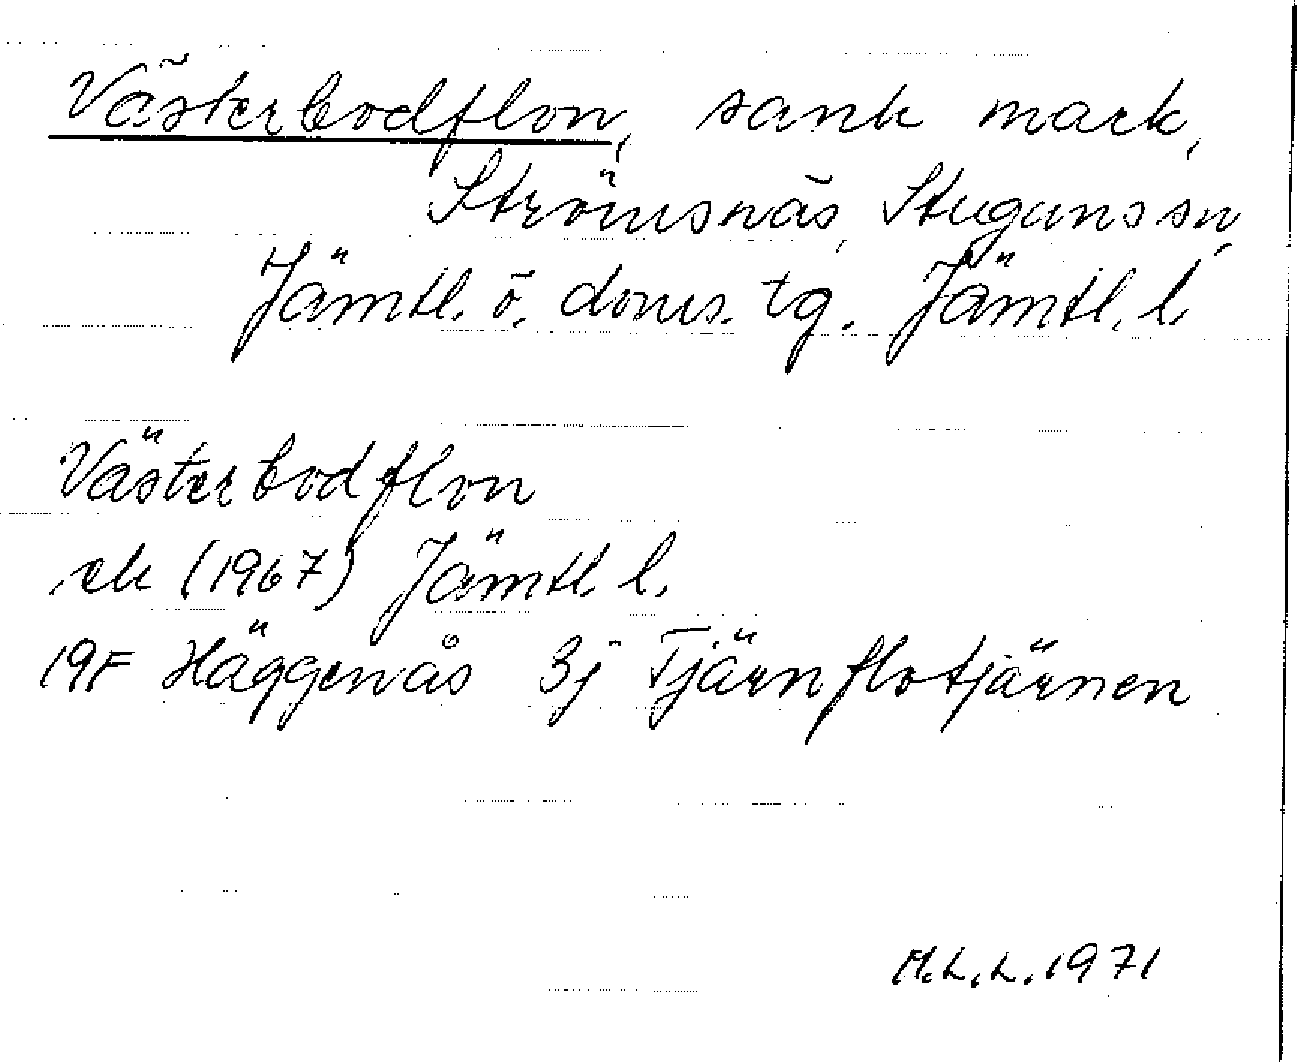 Västerbodflon, sank mark,
Strömsnäs, Stuguns sn,
Jämtl. ö. doms. tg. Jämtl. l.
Västerbodflon
ek (1967) Jämtl. l.
19F Häggenås 3j Tjärnflotjärnen
M.L.L. 1971